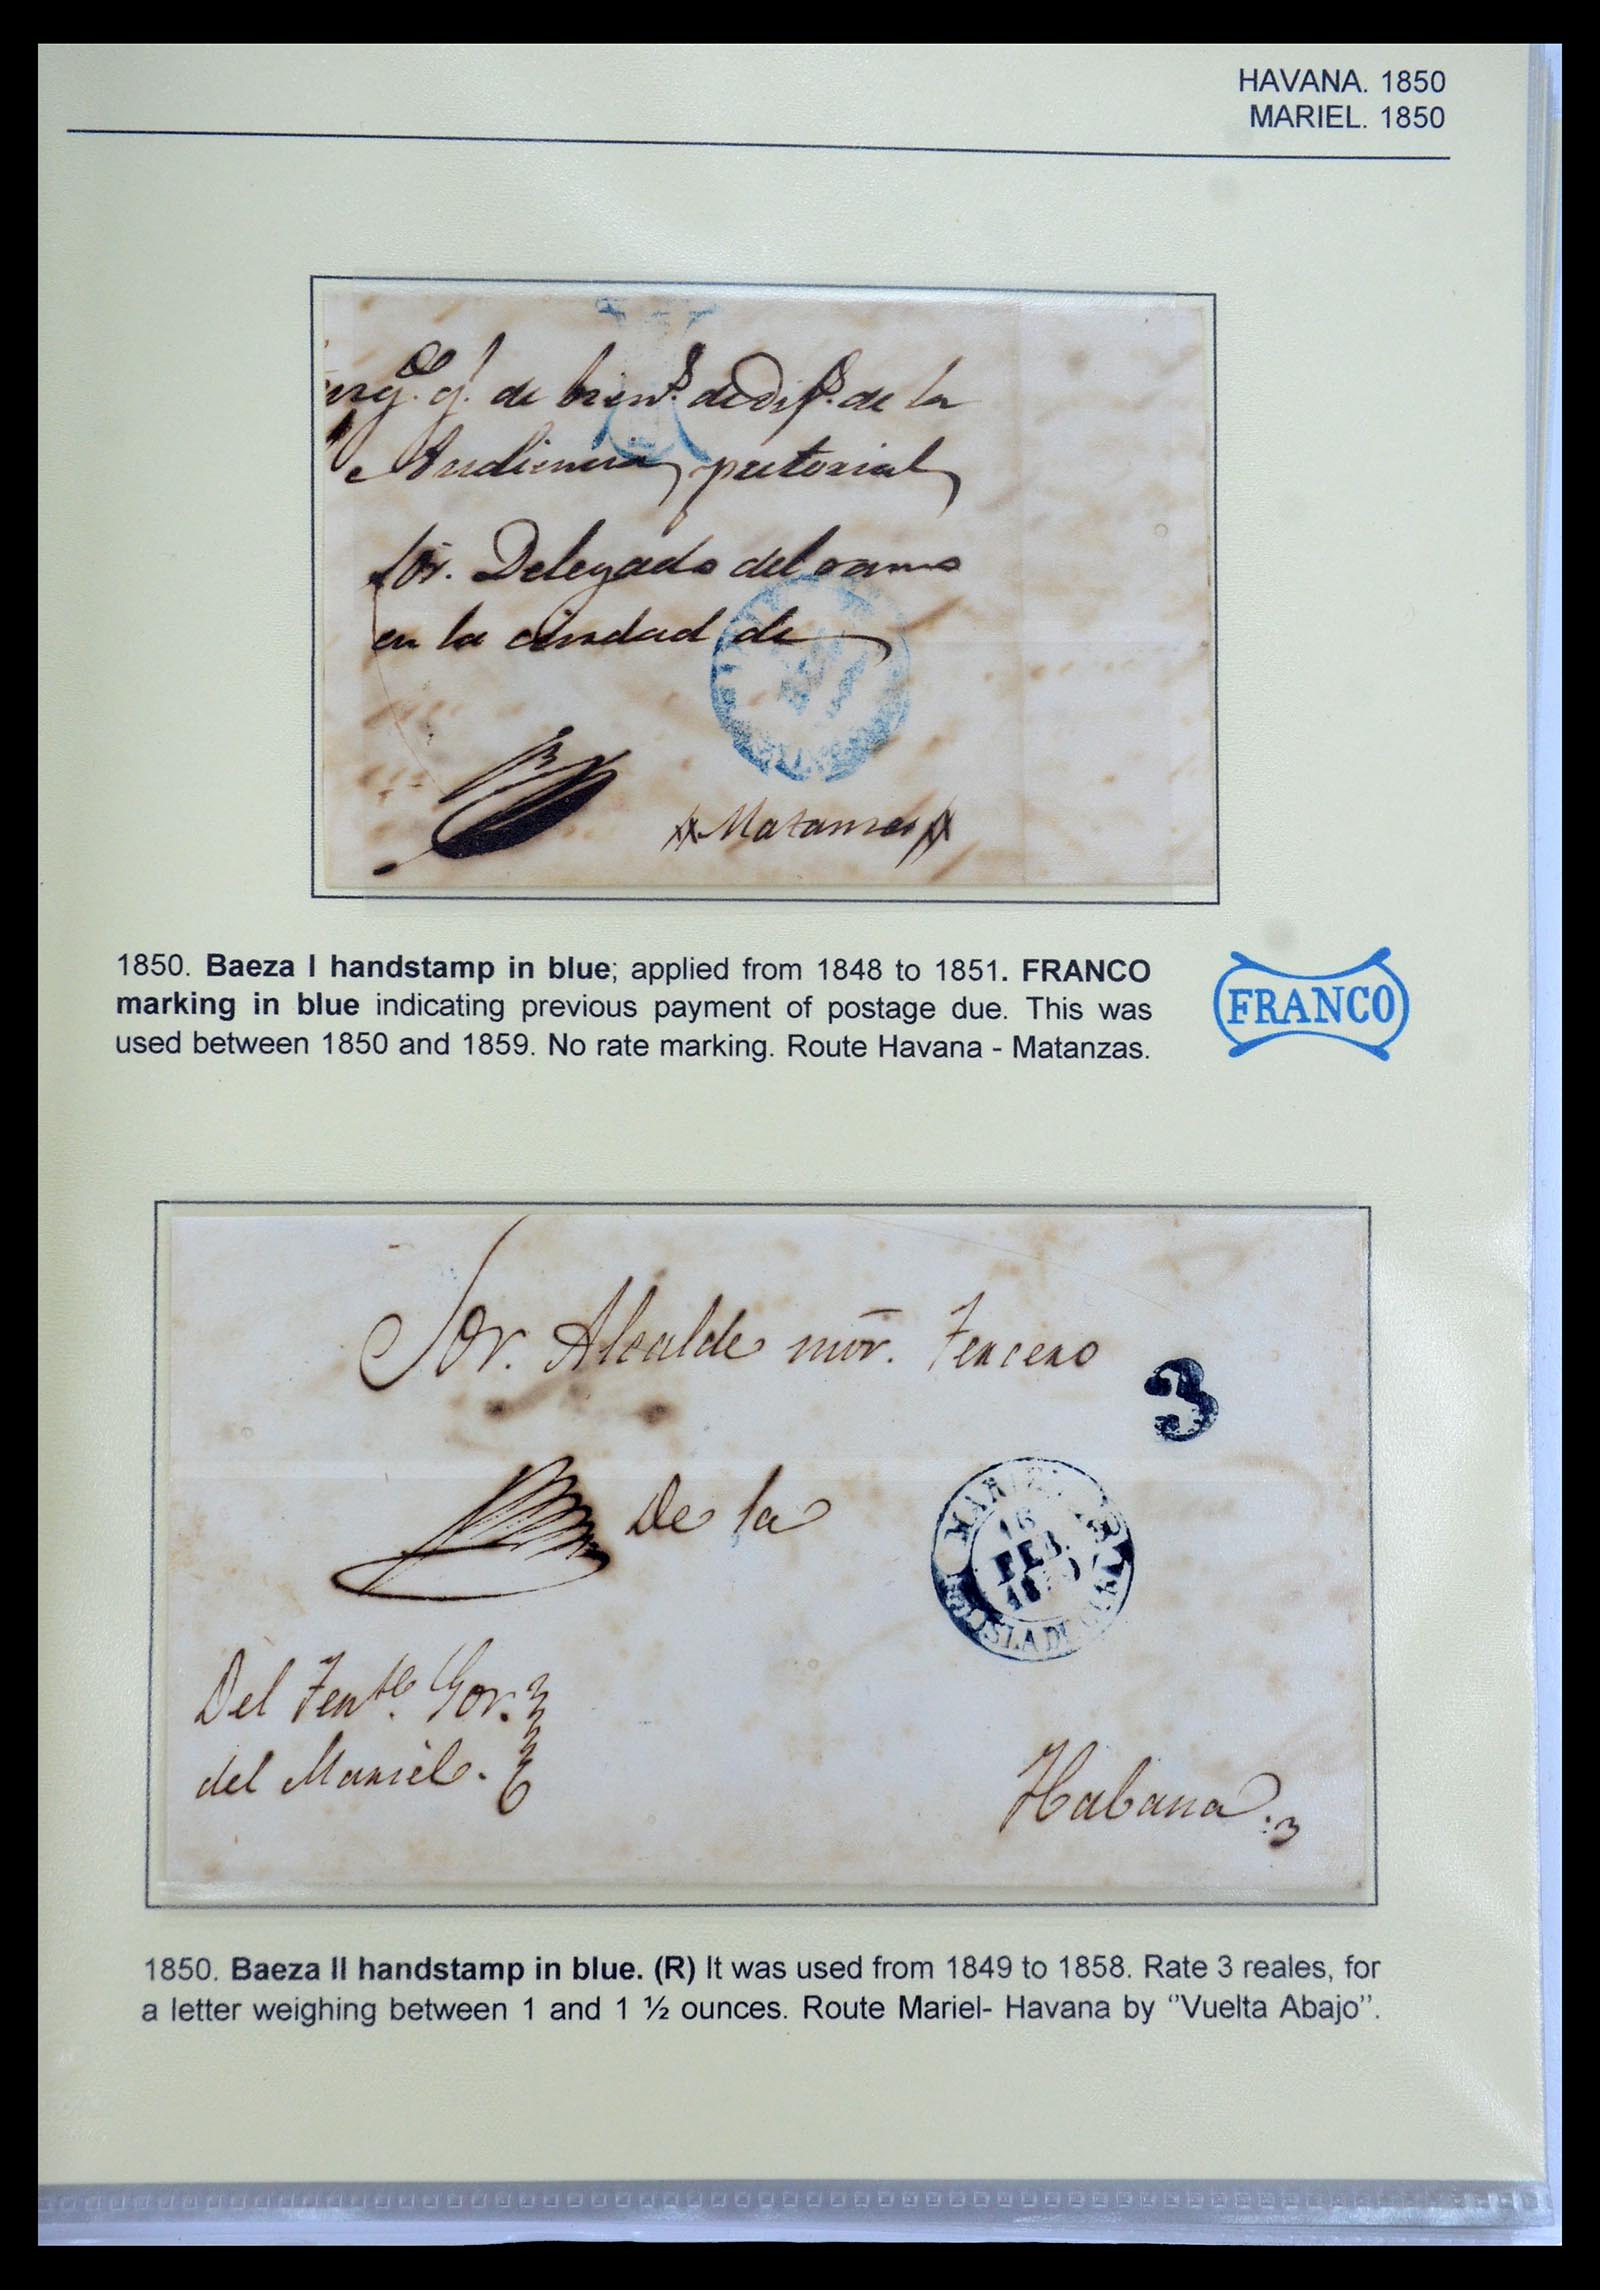 HAVANA. 1850
MARIEL. 1850
de la
Audiencia pretorial
Sor. Delegado del ramo
en la ciudad de
Matanzas
1850. Baeza I handstamp in blue; applied from 1848 to 1851. FRANCO
marking in blue indicating previous payment of postage due. This was
used between 1850 and 1859. No rate marking. Route Havana - Matanzas.
FRANCO
Sor. Alcalde mor. Tercero
3
De la
MARIEL
16
FEB
1850
ISLA DE CUBA
Del Tente. Gor.
del Mariel.
Habana
1850. Baeza II handstamp in blue. (R) It was used from 1849 to 1858. Rate 3 reales, for
a letter weighing between 1 and 1 ½ ounces. Route Mariel- Havana by ‘’Vuelta Abajo’’.